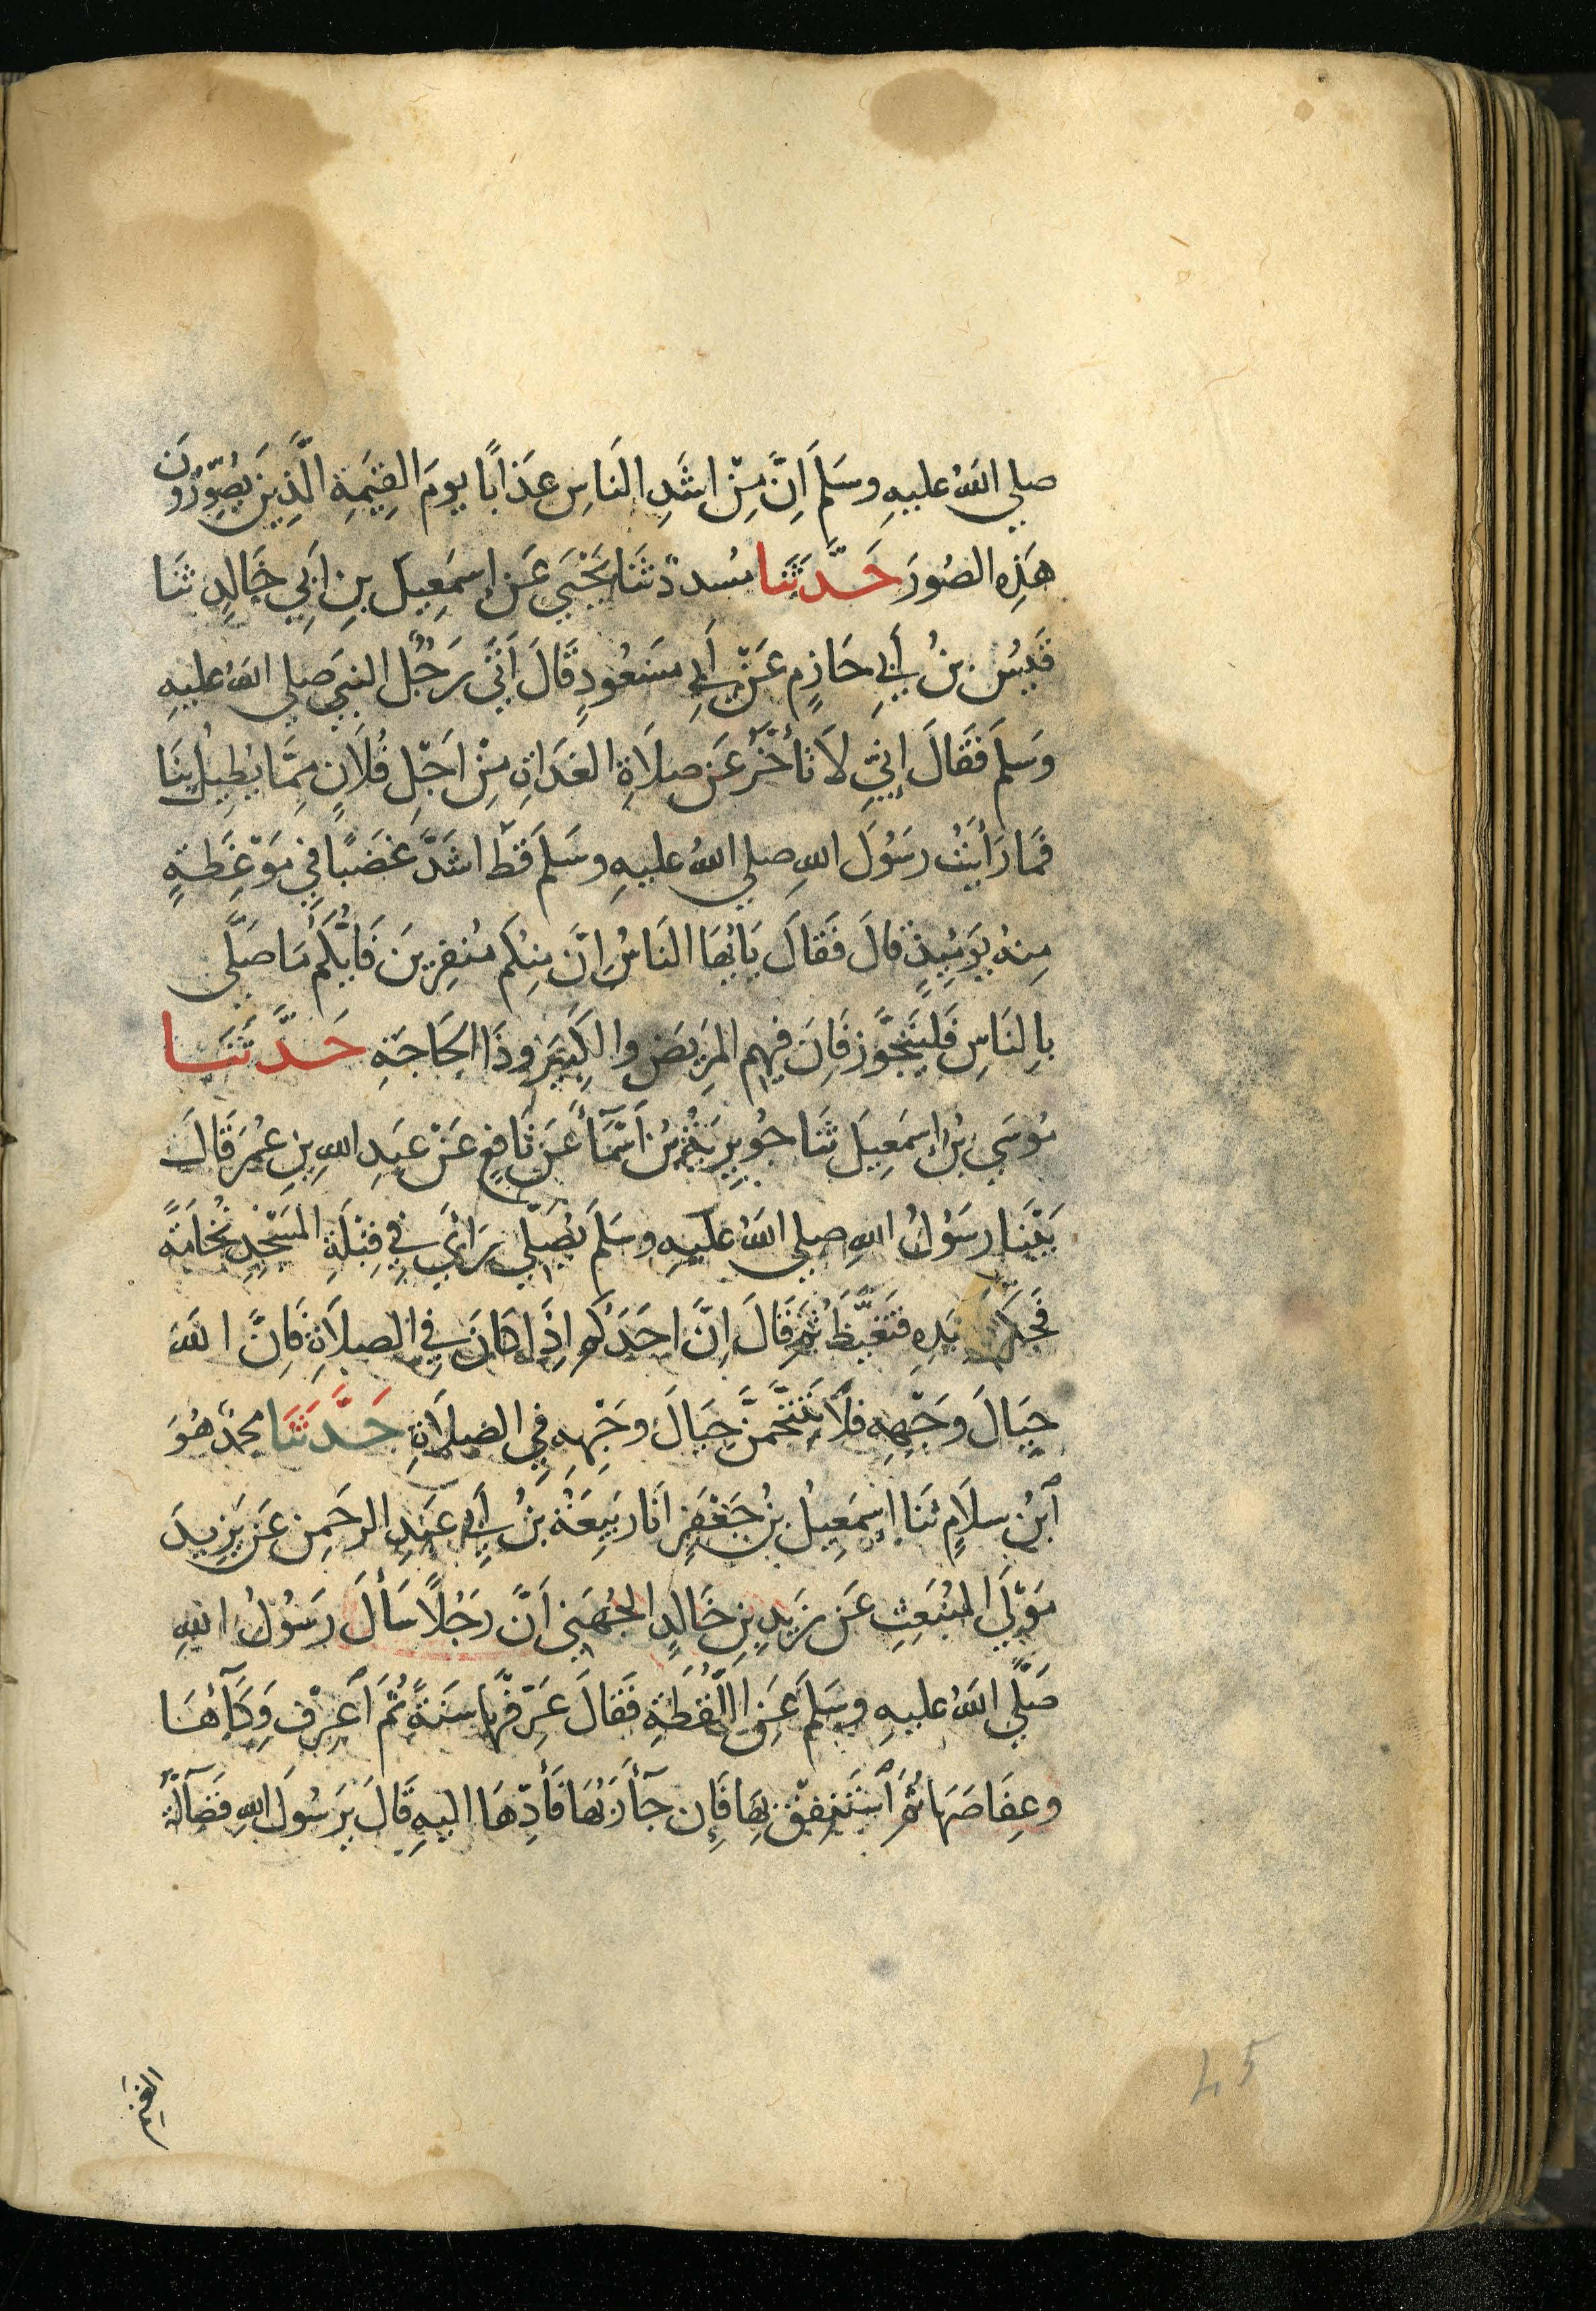 صلي اللهُ عليهِ وسَلَمَ اِنَّ مِنْ اشَدِ النَاسِ عَذابًا يومَ القِيٰمَةِ الَّذِينَ يُصِوِّرُونَ
هَذِه الصُورَ حَدَّثَنا مسُددٌ ثَنَا يَحْيَي عَن اِسمَعِيلَ بنِ اَبِي خَالِدٍ ثَنَا
قَيسُ بنُ أَبِي حَازِمٍ عَنْ اَبِي مسَعُودٍ قَالَ اَتَى رَجُلٌ النبيَ صَلي اللهُ عليهِ
وَسَلمَ فَقَالَ إِنِيّ لَا تَأَخَّرُ عَن صلَاةِ الغَدَاةِ مِنْ اَجْلِ فُلَانٍ مِمَّا يُطِيلُ بِنَا
فَمَا رَأَيتُ رسَوُلَ اللهِ صلي اللهُ عليهِ وسَلمَ قَطّ اشَدَّ غَضَبًا فِي مَوْعِظَةٍ
مِنهُ يَوَمَيِذٍ قالَ فَقَالَ يَايُهَا النَاسُ اِنَّ مِنكُم مُنفِرِينَ فَايُّكُم مَا صَلَّى
بالِنَاسِ فَليَتَجَوَّز فَاِنَ فِيهِم المَرِيضَ والكَبِيَر وذَا الحَاجَةِ حَدَّثَنَا
موُسَي بنُ اِسمَعِيلَ ثَنَا جُوَيرِيَةُ بنُ اَسْمَآءَ عَن نَافِعٍ عَنْ عَبدِ اللهِ بنِ عُمَرَ قَالَ
بَيْنَا رسَوُلُ اللهِ صلي اللهُ عَليهِ وسَلمَ يُصَلّي رَأَي فِي قِبْلَةِ المَسْجِدِ نُخَامَةً
فَحَكَّهَا بيَدِهِ فَتَغَيَّظَ ثُمَّ قَالَ اِنَّ احَدَكُم اِذَا كَانَ فِي الصلاَةِ فَاِنَّ اللهَ
حِيَالَ وَجْهِهِ فلَا يَتَنَخَّمَنَّ حِيَالَ وجَهِهِ فِي الصلَاةِ حَدَّثَنَا محَمدٌ هُوَ
ٱبنُ سلَامٍ ثَنَا اِسمَعِيلُ بنُ جَعْفَرٍ اَنَا رَبِيعَةُ بنُ أَبِي عَبدِ الرحَمِن عَن يَزِيدَ
مَوْلَى المُنبَعِثِ عَن زَيدِ بنِ خَالِدٍ الجُهَنِي اَنَّ رَجُلًا سَأَلَ رسَوُلَ اللهِ
صَلَّي اللهُ عليهِ وسَلمَ عَنِ اللُّقَطَةِ فَقَالَ عَرِّفْهَا سَنَةً ثُمَ ٱعرِفْ وِكَآءَهَا
وعِفَاصَهَا ثُمَّ ٱستَنفِقْ بِهَا فَإِن جَآءَ رَبُهَا فَأَدِّهَا اليهِ قَالَ يَرَسُولَ اللهِ فَضَآلَّةُ
الغنم
45